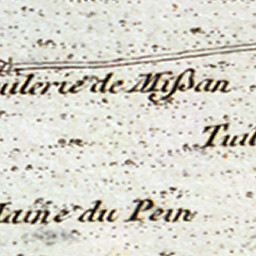 uilerie de Mißan
Tuil
aine du Pein